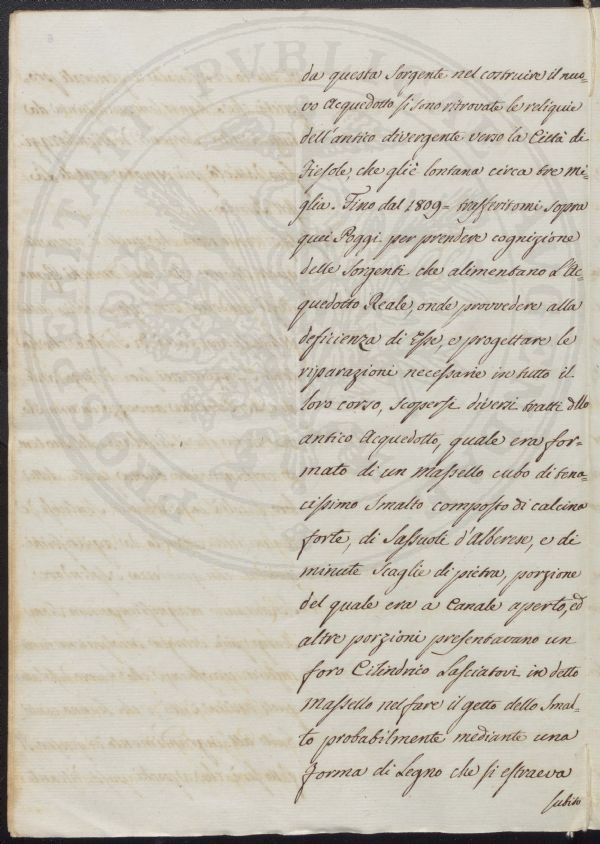 da questa Sorgente nel costruire il nuo=
vo Acquedotto si sono ritrovate le reliquie
dell'antico divergente verso la Città di
Fiesole che gl'è lontana circa tre mi=
glia. Fino dal 1809= trasferitomi sopra
quei Poggi per prendere cognizione
delle Sorgenti che alimentano L'Ac=
quedotto Reale, onde provvedere alla
deficienza di Esse, e progettare le
riparazioni necessarie in tutto il
loro corso, scopersi diversi tratti dllo
antico Acquedotto, quale era for=
mato di un Massello cubo di tena=
cissimo Smalto composto di calcina
forte, di Sassuoli d'Alberese, e di
minute Scaglie di pietra, porzione
del quale era a Canale aperto, ed
altre porzioni presentavano un
foro Cilindrico Lasciatovi in detto
Massello nel fare il getto dello Smal=
to probabilmente mediante una
forma di Legno che si estraeva
subito